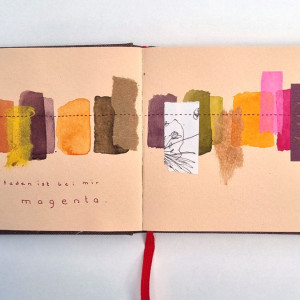 faden ist bei mir
magenta.